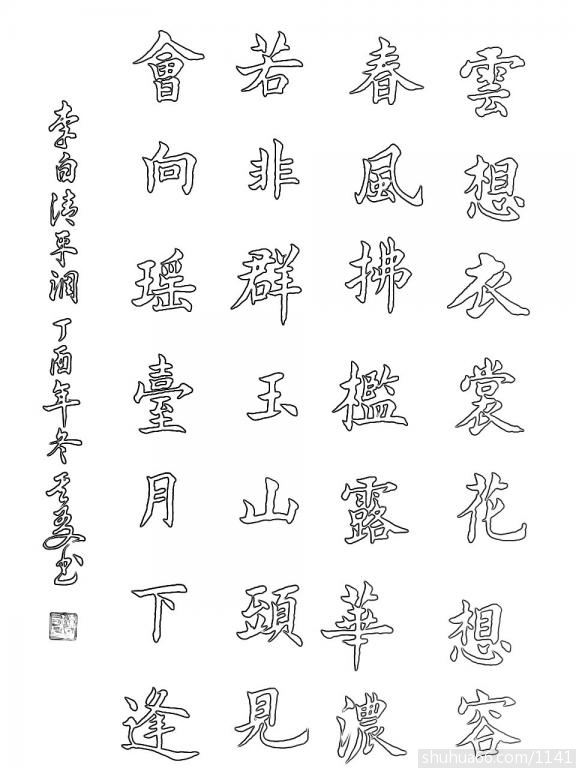 雲想衣裳花想容
春風拂檻露華濃
若非群玉山頭見
會向瑶臺月下逢
李白清平调丁酉年冬书
shuhua66.com/1141